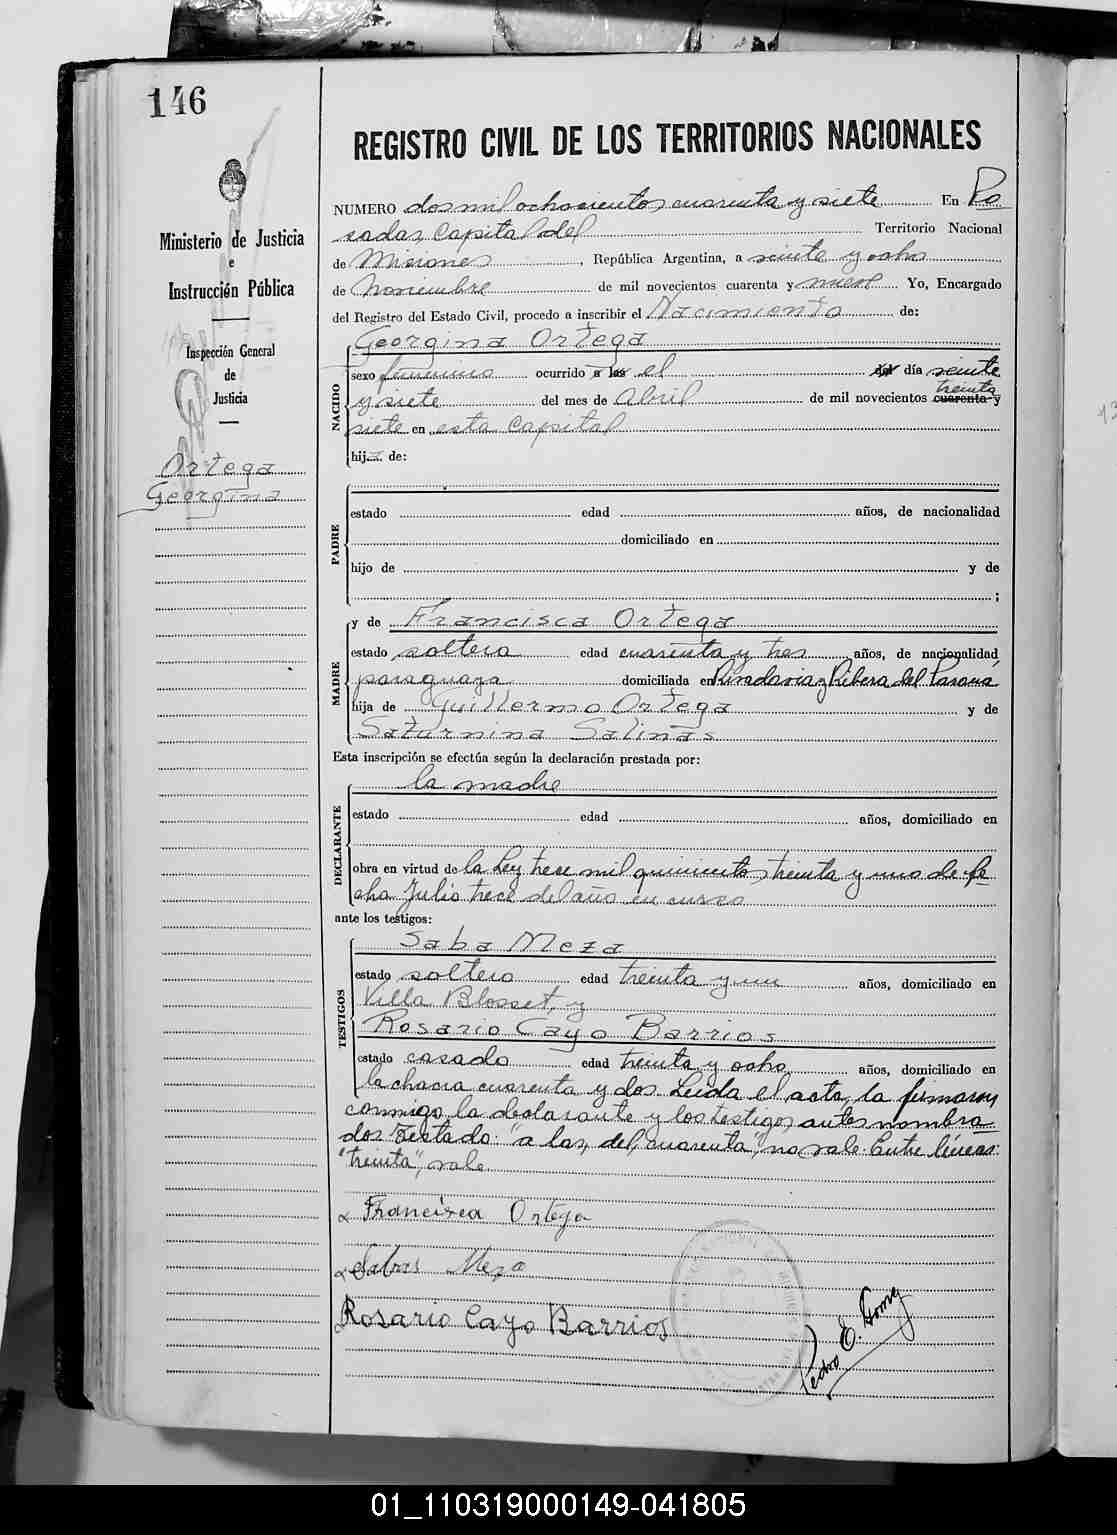 146
Ministerio de Justicia
e
Instrucción Pública
Inspección General
de
Justicia
Ortega
Georgina
REGISTRO CIVIL DE LOS TERRITORIOS NACIONALES
NUMERO dos mil ochocientos cuarenta y siete En Po
sadas, Capital del Territorio Nacional
de Misiones, República Argentina, a veinte y ocho
de Noviembre de mil novecientos cuarenta y nueve Yo, Encargado
del Registro del Estado Civil, procedo a inscribir el Nacimiento de:
NACIDO
Georgina Ortega
sexo femenino ocurrido a las el del día veinte
y siete del mes de Abril de mil novecientos cuarenta y treinta
siete en esta Capital
hija de:
PADRE
estado edad años, de nacionalidad
domiciliado en
hijo de y de
;
MADRE
y de Francisca Ortega
estado soltera edad cuarenta y tres años, de nacionalidad
paraguaya domiciliada en Rivadavia y Ribera del Paraná
hija de Guillermo Ortega y de
Saturnina Salinas
Esta inscripción se efectúa según la declaración prestada por:
DECLARANTE
la madre
estado edad años, domiciliado en
obra en virtud de la Ley trece mil quinientos treinta y uno de fe
cha Julio trece del año en curso
ante los testigos:
TESTIGOS
Saba Meza
estado soltero edad treinta y un años, domiciliado en
Villa Blosset, y
Rosario Cayo Barrios
estado casado edad treinta y ocho años, domiciliado en
la chacra cuarenta y dos. Leída el acta, la firmaron
conmigo la declarante y los testigos antes nombra
dos. Testado: "a las, del, cuarenta", no vale. Entre líneas:
"treinta", vale.
Francisca Ortega
Sabas Meza
Rosario Cayo Barrios
Pedro E. Gomez
01_110319000149-041805